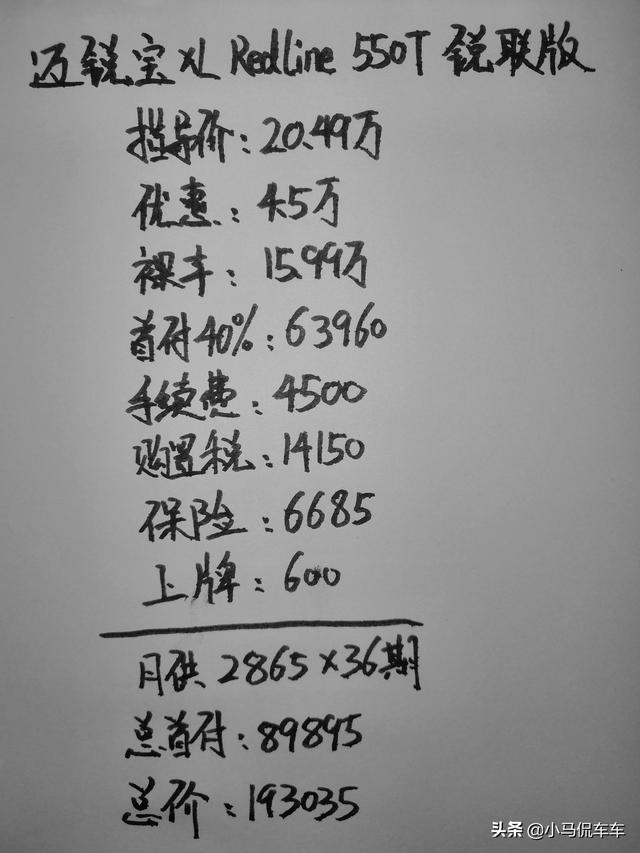 迈锐宝XL Redline 550T 锐联版
指导价：20.49万
优惠：4.5万
裸车：15.99万
首付40%：63960
手续费：4500
购置税：14150
保险：6685
上牌：600
月供 2865×36期
总首付：89895
总价：193035
头条 @小马侃车车